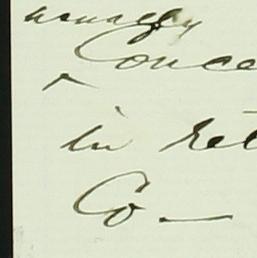 usually
Conce
in ret
Co —